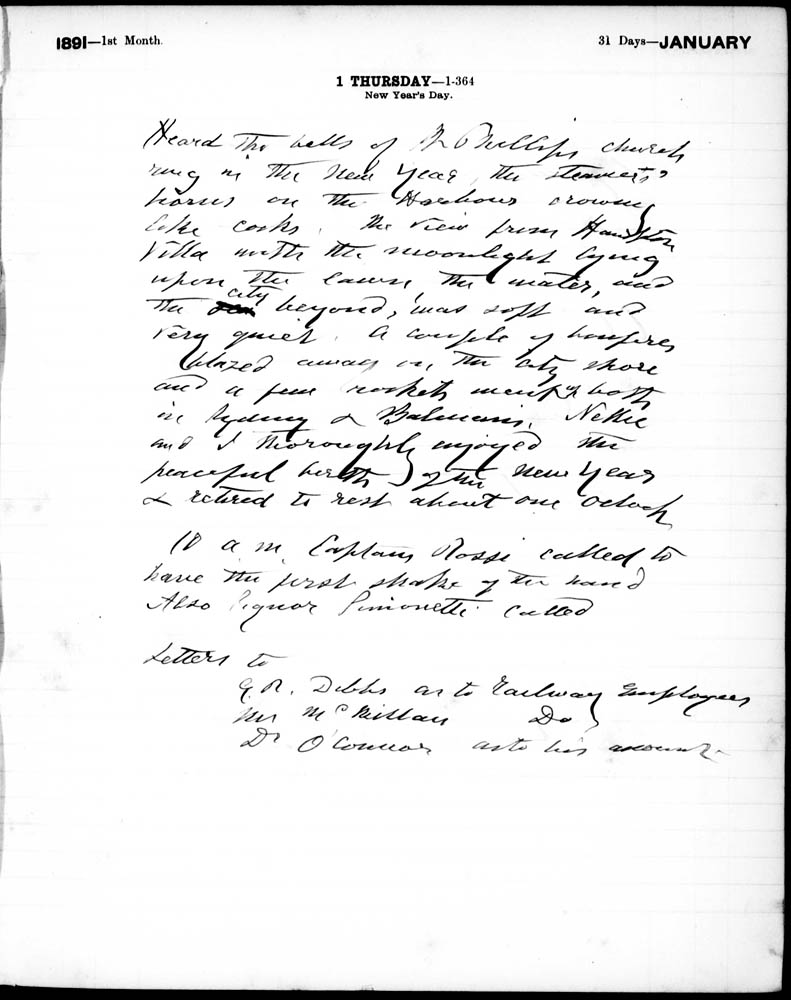 1891—1st Month.
31 Days—JANUARY
1 THURSDAY—1-364
New Year's Day.
Heard the bells of St Phillips church
ring in the New Year, the steamers'
horns on the Harbour crowing
like cocks. The view from Hampton
Villa with the moonlight lying
upon the lawn, the water, and
the city beyond, was soft and
very quiet. A couple of bonfires
blazed away on the city shore
and a few rockets went up both
in Sydney & Balmain. Nellie
and I thoroughly enjoyed the
peaceful birth of the New Year
& retired to rest about one oclock
10 a.m. Captain Rossi called to
have the first shake of the hand
Also Signor Simonetti called
Letters to
G. R. Dibbs as to Railway Employees
Mr McMillan Do
Dr O'Connor as to his account